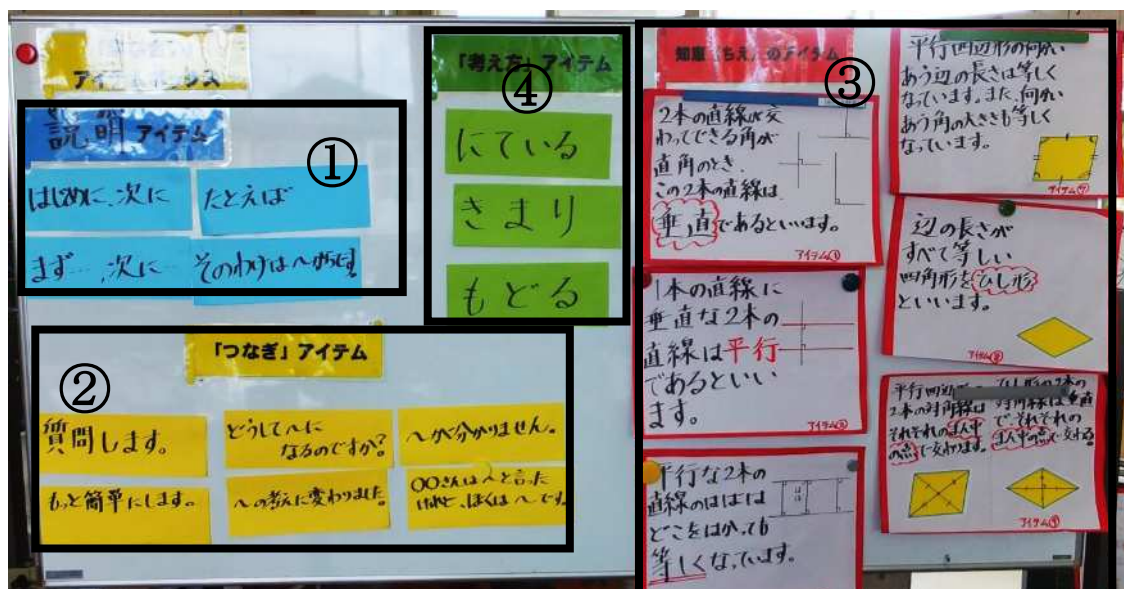 アイテムボックス
説明 アイテム
①
はじめに、次に
たとえば
まず…、次に…
そのわけは〜からです
「つなぎ」アイテム
②
質問します。
どうして〜に
なるのですか?
〜が分かりません。
もっと簡単にします。
〜の考えに変わりました。
〇〇さんは〜と言った
けれど、ぼくは〜です。
「考え方」アイテム
④
にている
きまり
もどる
知恵(ちえ)のアイテム
③
2本の直線が交
わってできる角が
直角のとき
この2本の直線は
垂直であるといいます。
アイテム①
1本の直線に
垂直な2本の
直線は平行
であるといい
ます。
平行な2本の
直線のはばは
どこをはかっても
等しくなっています。
はば
平行四辺形の向かい
あう辺の長さは等しく
なっています。また、向かい
あう角の大きさも等しく
なっています。
アイテム⑦
辺の長さが
すべて等しい
四角形をひし形
といいます。
アイテム⑧
平行四辺
2本の対角線は
それぞれのまん中
の点で交わります。
ひし形の2本の
対角線は垂直
で、それぞれの
まん中の点で交わる。
アイテム⑨